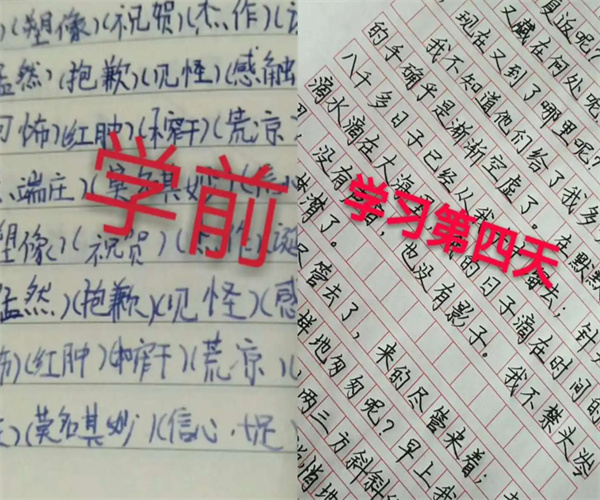 )(塑像)(祝贺)(杰作)(
然)(抱歉)(见怪)(感触
怖)(红肿)(榨干)(荒凉
、端庄)(莫名其妙)(信心
塑像)(祝贺)(杰作)(诞
然)(抱歉)(见怪)(感
怖)(红肿)(榨干)(荒凉)(
)(莫名其妙)(信心十足
学前
返呢?
又藏在何处呢
现在又到了哪里呢?
我不知道他们给了我多
的手确乎是渐渐空虚了。在默默
八千多日子已经从我
溜去;针
滴水滴在大海
的日子滴在时间的
没有
,也没有影子。我不禁头涔
潸了。
管去了,来的尽管来着;
样地匆匆呢?早上我
两三方斜斜
学习第四天